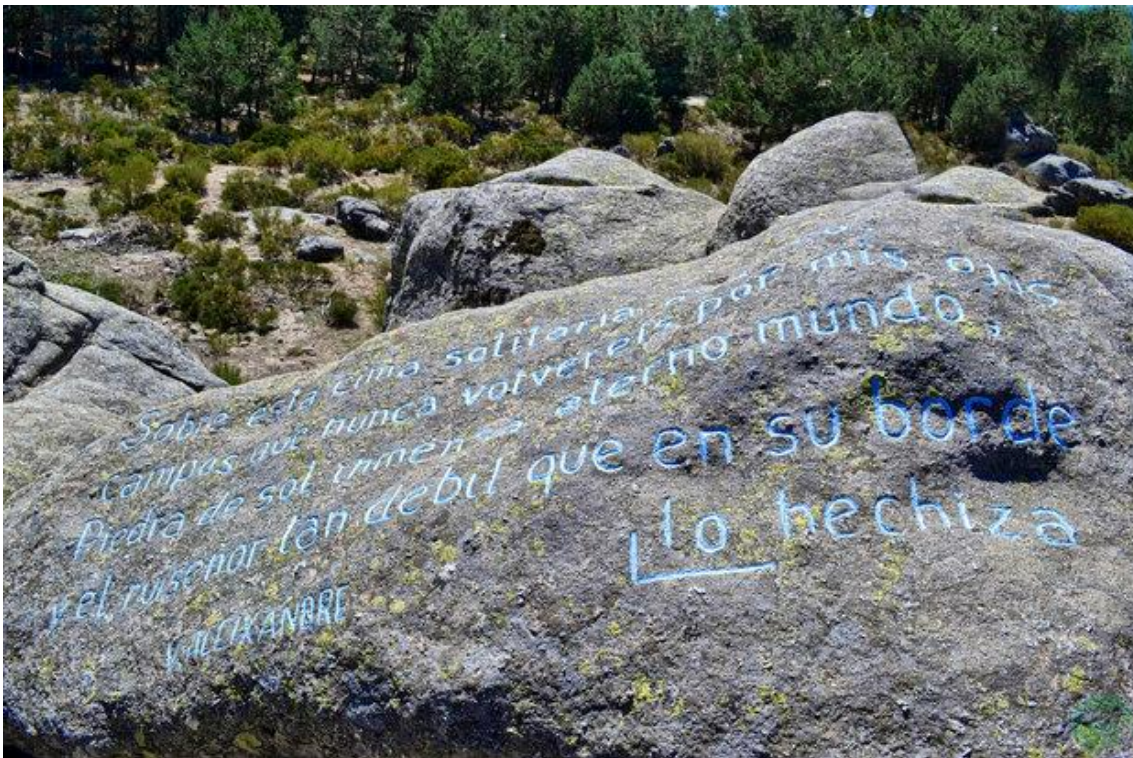 Sobre esta cima solitaria
campos que nunca volvereis por mis ojos
Piedra de sol inmensa eterno mundo,
y el ruiseñor tan debil que en su borde
lo hechiza
V. ALEIXANDRE